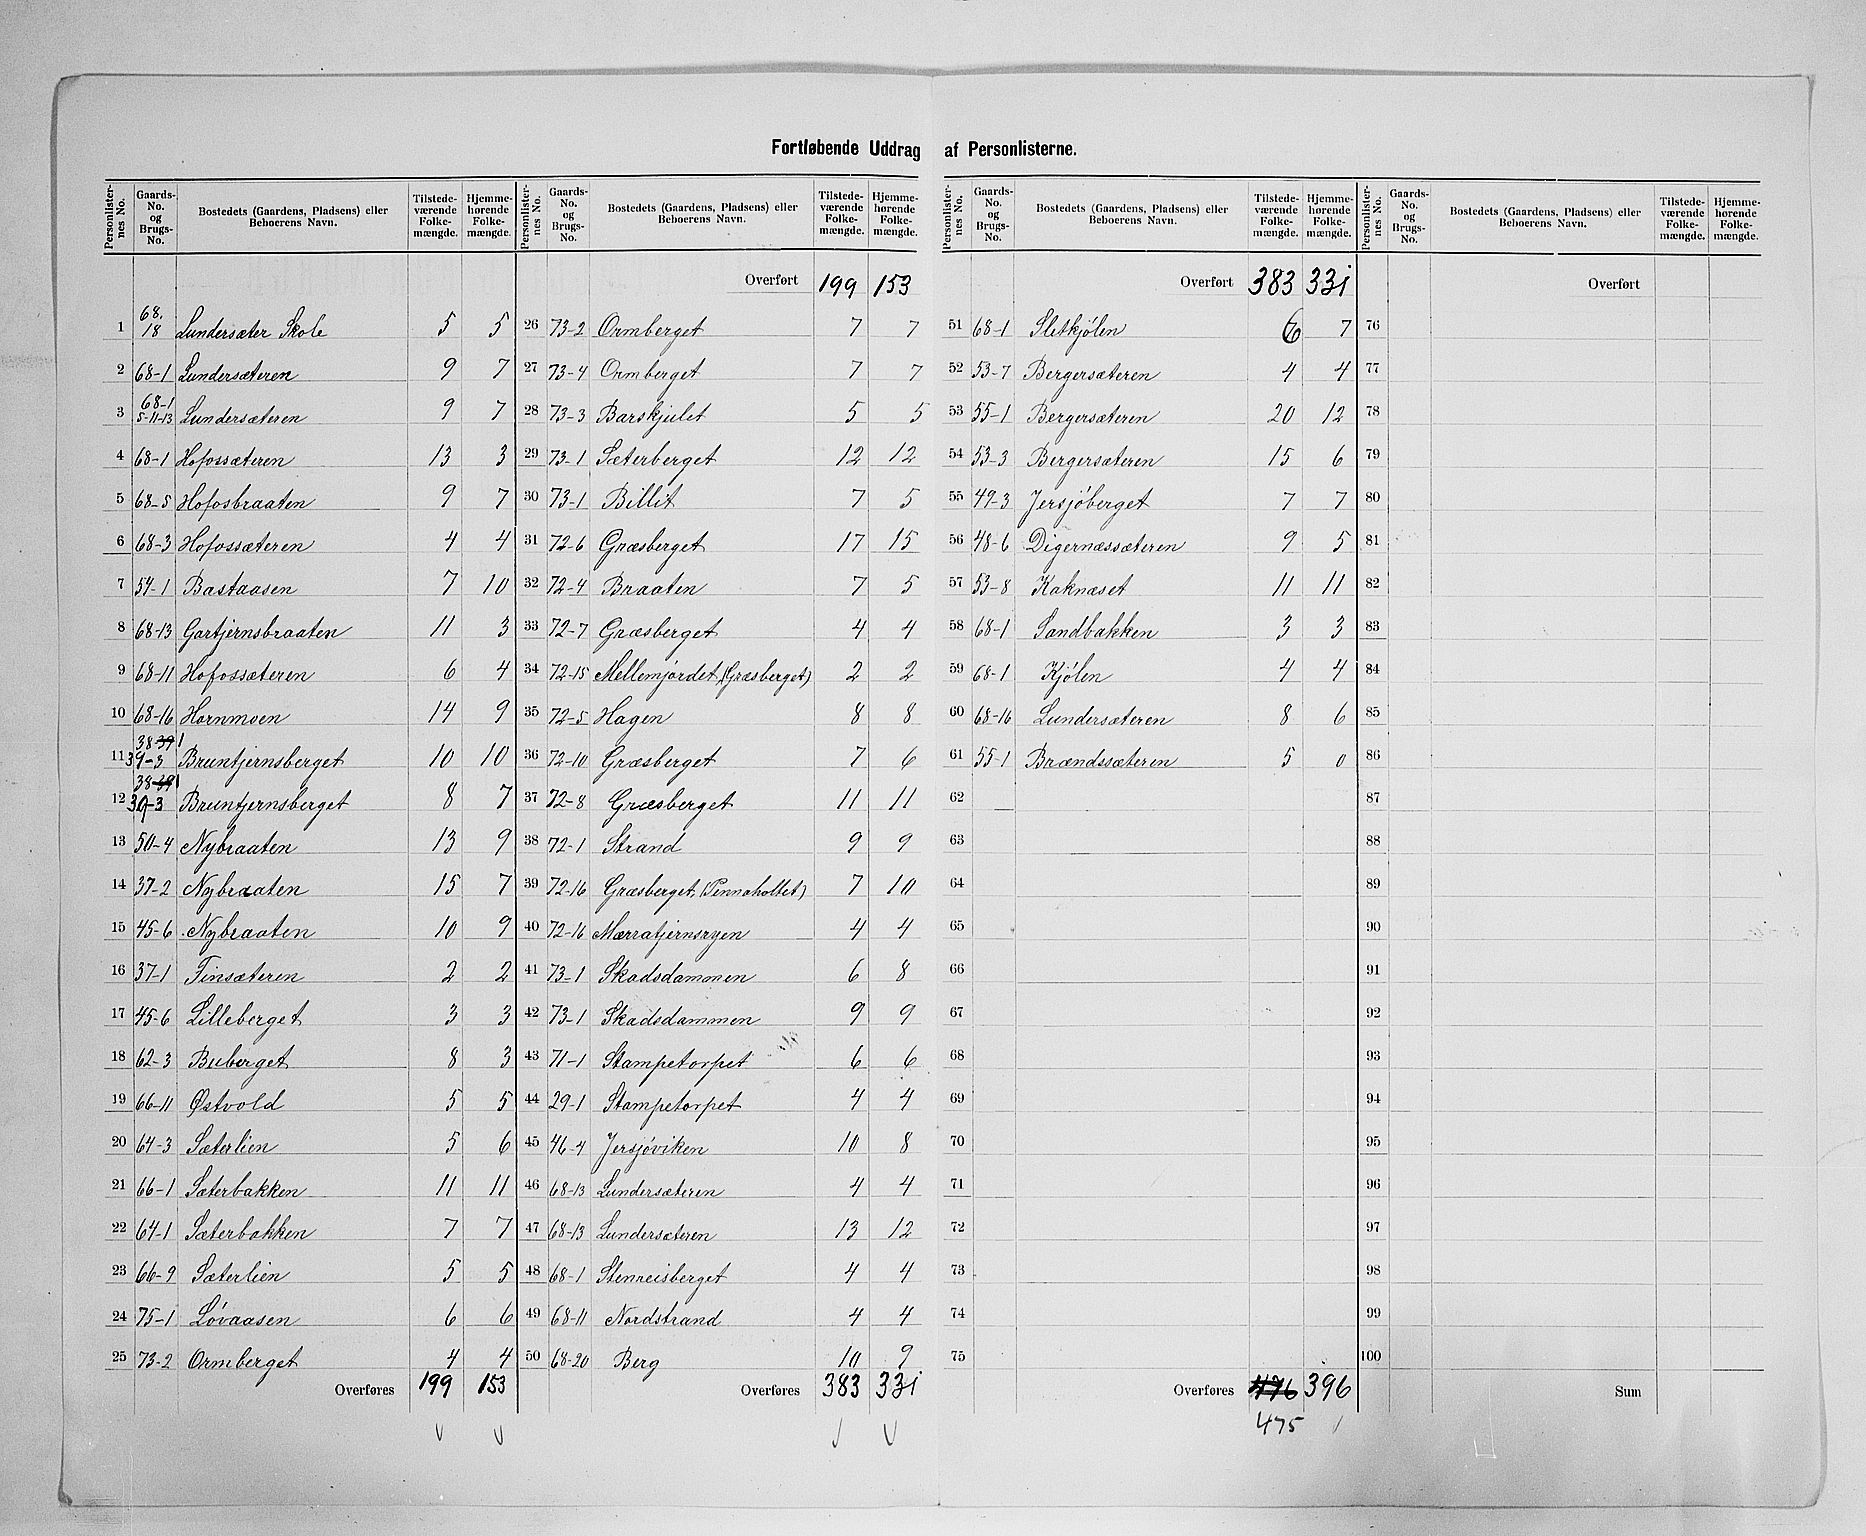 Fortløbende Uddrag af Personlisterne.
Personlister-nes No. | Gaards-No. og Brugs-No. | Bostedets (Gaardens, Pladsens) eller Beboerens Navn. | Tilstede-værende Folke-mængde. | Hjemme-hørende Folke-mængde.
1 68.18 Lundersæter Skole 5 5
2 68-1 Lundersæteren 9 7
3 68-1 5-11-13 Lundersæteren 9 7
4 68-1 Hofossæteren 13 3
5 68-5 Hofosbraaten 9 7
6 68-3 Hofossæteren 4 4
7 54-1 Bastaasen 7 10
8 68-13 Gartjernsbraaten 11 3
9 68-11 Hofossæteren 6 4
10 68-16 Hornmoen 14 9
11 38-39 1 39-3 Bruntjernsberget 10 10
12 38-39 1 39-3 Bruntjernsberget 8 7
13 50-4 Nybraaten 13 9
14 37-2 Nybraaten 15 7
15 45-6 Nybraaten 10 9
16 37-1 Finsæteren 2 2
17 45-6 Lilleberget 3 3
18 62-3 Buberget 8 3
19 66-11 Østvold 5 5
20 64-3 Sæterlien 5 6
21 66-1 Sæterbakken 11 11
22 64-1 Sæterbakken 7 7
23 66-9 Sæterlien 5 5
24 75-1 Løvaasen 6 6
25 73-2 Ormberget 4 4
Overføres 199 153
Personlister-nes No. | Gaards-No. og Brugs-No. | Bostedets (Gaardens, Pladsens) eller Beboerens Navn. | Tilstede-værende Folke-mængde. | Hjemme-hørende Folke-mængde.
Overført 199 153
26 73-2 Ormberget 7 7
27 73-4 Ormberget 7 7
28 73-3 Barskjulet 5 5
29 73-1 Sæterberget 12 12
30 73-1 Billit 7 5
31 72-6 Græsberget 17 15
32 72-4 Braaten 7 5
33 72-7 Græsberget 4 4
34 72-15 Mellemjordet (Græsberget) 2 2
35 72-5 Hagen 8 8
36 72-10 Græsberget 7 6
37 72-8 Græsberget 11 11
38 72-1 Strand 9 9
39 72-16 Græsberget (Pennaholtet) 7 10
40 72-16 Mærratjernsryen 4 4
41 73-1 Skadsdammen 6 8
42 73-1 Skadsdammen 9 9
43 71-1 Stampetorpet 6 6
44 29-1 Stampetorpet 4 4
45 46-4 Jersjøviken 10 8
46 68-13 Lundersæteren 4 4
47 68-13 Lundersæteren 13 12
48 68-1 Stenreisberget 4 4
49 68-11 Nordstrand 4 4
50 68-20 Berg 10 9
Overføres 383 331
Personlister-nes No. | Gaards-No. og Brugs-No. | Bostedets (Gaardens, Pladsens) eller Beboerens Navn. | Tilstede-værende Folke-mængde. | Hjemme-hørende Folke-mængde.
Overført 383 331
51 68-1 Sletkjølen 6 7
52 53-7 Bergersæteren 4 4
53 55-1 Bergersæteren 20 12
54 53-3 Bergersæteren 15 6
55 49-3 Jersjøberget 7 7
56 48-6 Digernæssæteren 9 5
57 53-8 Kaknæset 11 11
58 68-1 Sandbakken 3 3
59 68-1 Kjølen 4 4
60 68-16 Lundersæteren 8 6
61 55-1 Brændssæteren 5 0
62
63
64
65
66
67
68
69
70
71
72
73
74
75
Overføres 476 396
475
Personlister-nes No. | Gaards-No. og Brugs-No. | Bostedets (Gaardens, Pladsens) eller Beboerens Navn. | Tilstede-værende Folke-mængde. | Hjemme-hørende Folke-mængde.
Overført
76
77
78
79
80
81
82
83
84
85
86
87
88
89
90
91
92
93
94
95
96
97
98
99
100
Sum